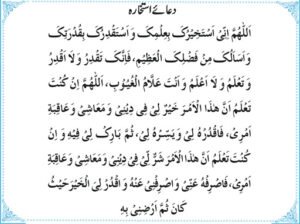 دعائے استخارہ
اَللّٰهُمَّ اِنِّىْ اَسْتَخِيْرُكَ بِعِلْمِكَ وَ اَسْتَقْدِرُكَ بِقُدْرَتِكَ
وَ اَسْاَلُكَ مِنْ فَضْلِكَ الْعَظِيْمِ، فَاِنَّكَ تَقْدِرُ وَ لَا اَقْدِرُ
وَ تَعْلَمُ وَ لَا اَعْلَمُ وَ اَنْتَ عَلَّامُ الْغُيُوْبِ، اَللّٰهُمَّ اِنْ كُنْتَ
تَعْلَمُ اَنَّ هٰذَا الْاَمْرَ خَيْرٌ لِّىْ فِىْ دِيْنِىْ وَ مَعَاشِىْ وَ عَاقِبَةِ
اَمْرِىْ، فَاقْدُرْهُ لِىْ وَ يَسِّرْهُ لِىْ، ثُمَّ بَارِكْ لِىْ فِيْهِ وَ اِنْ
كُنْتَ تَعْلَمُ اَنَّ هٰذَا الْاَمْرَ شَرٌّ لِّىْ فِىْ دِيْنِىْ وَ مَعَاشِىْ وَ عَاقِبَةِ
اَمْرِىْ، فَاصْرِفْهُ عَنِّىْ وَ اصْرِفْنِىْ عَنْهُ وَ اقْدُرْ لِىَ الْخَيْرَ حَيْثُ
كَانَ ثُمَّ اَرْضِنِىْ بِهٖ